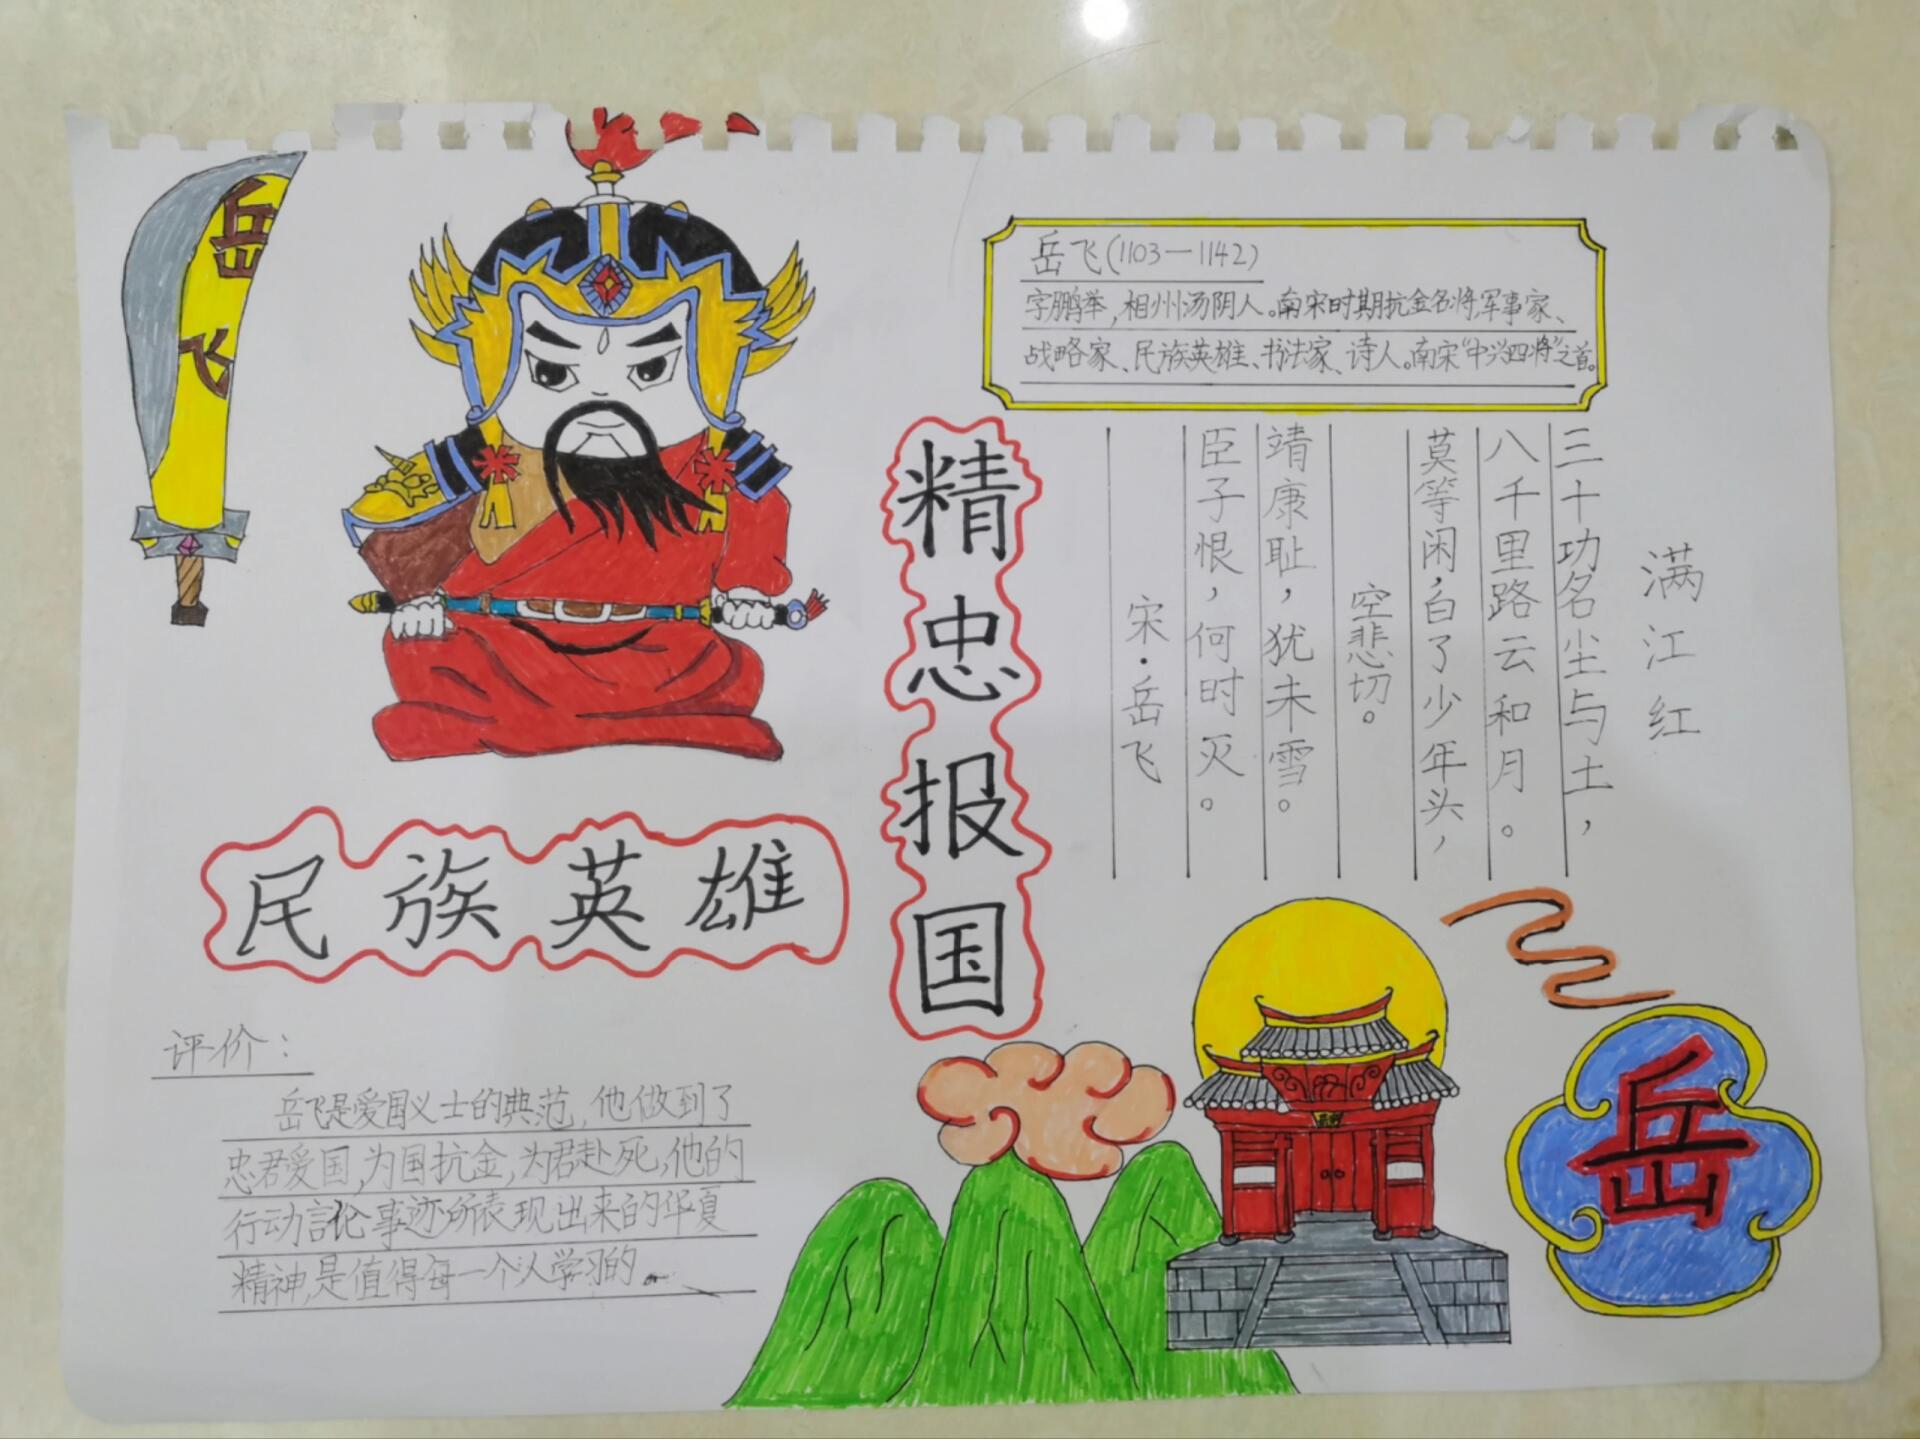 岳
飞
岳飞(1103—1142)
字鹏举,相州汤阴人。南宋时期抗金名将军事家、
战略家、民族英雄、书法家、诗人。南宋"中兴四将"之首。
精忠报国
满江红
三十功名尘与土,
八千里路云和月。
莫等闲,白了少年头,
空悲切。
靖康耻,犹未雪。
臣子恨,何时灭。
宋·岳飞
民族英雄
评价:
岳飞是爱国义士的典范,他做到了
忠君爱国,为国抗金,为君赴死,他的
行动言论事迹所表现出来的华夏
精神,是值得每一个人学习的
岳